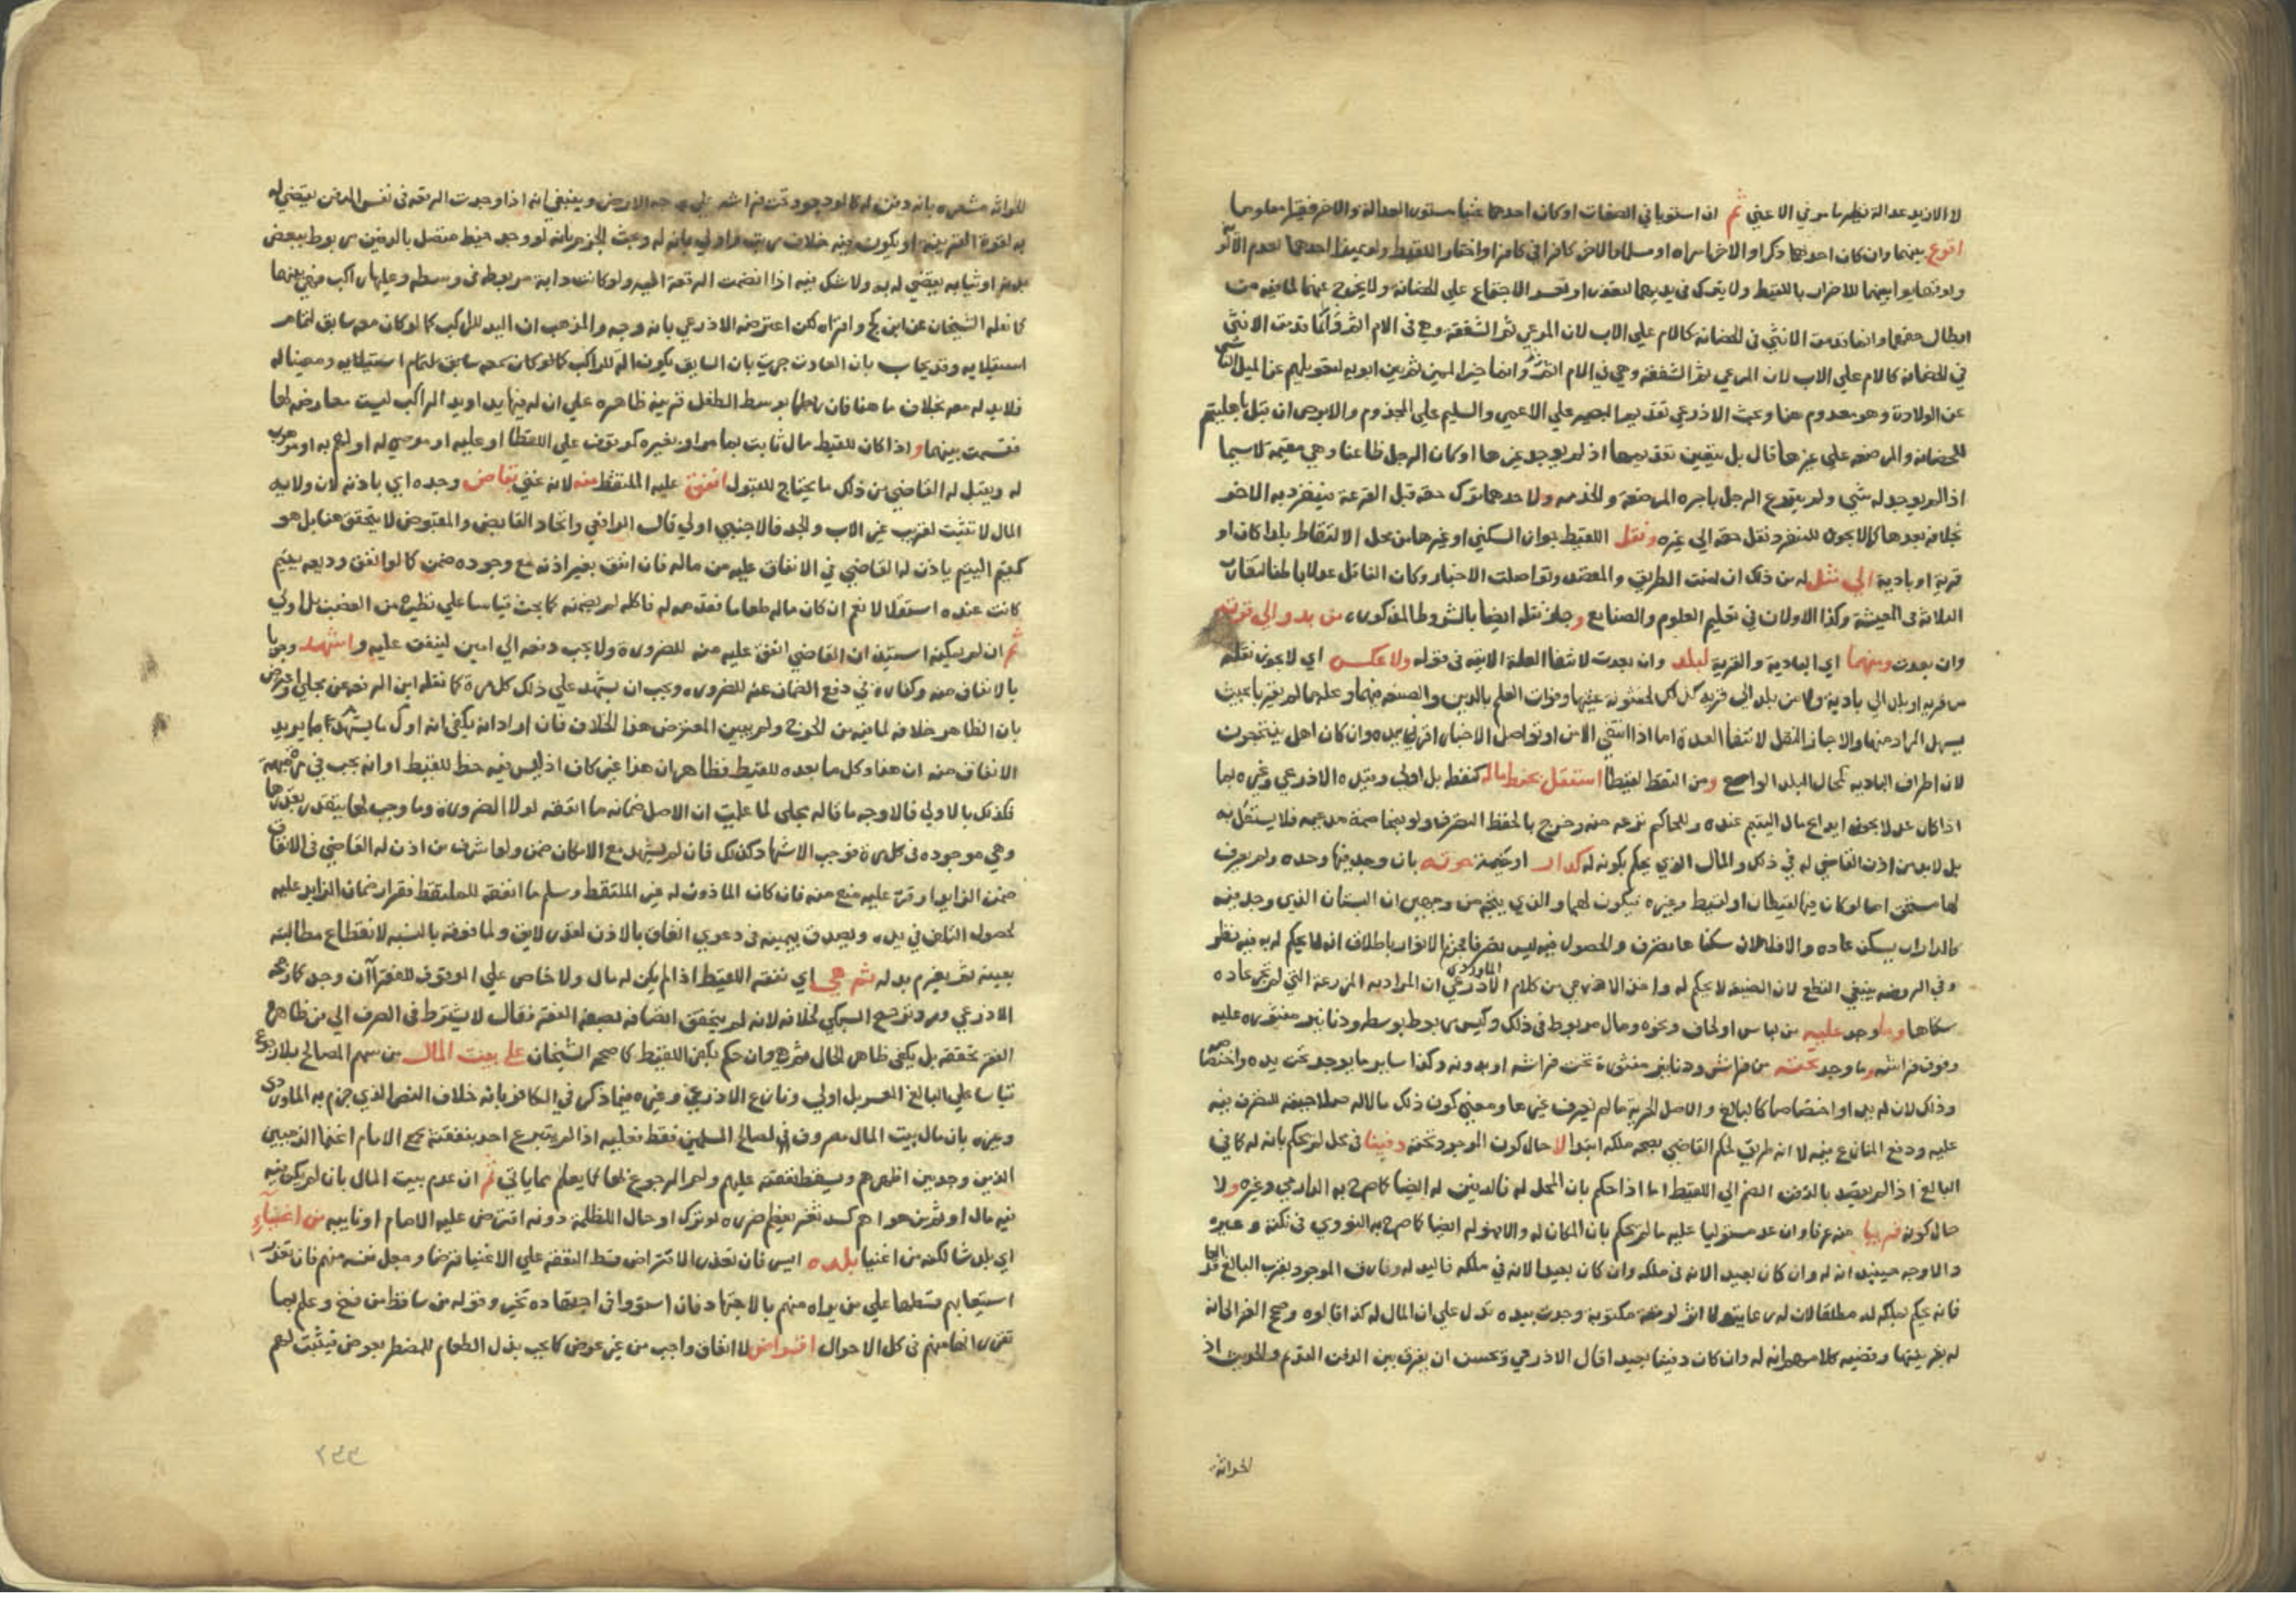 لا الازيد عدالة نظير ما مر في الاغني ثم ان استويا في الصفات او كان احدهما غنيا مستور العدالة والاخر فقيرا معلومها
اقرع بينهما وان كان احدهما ذكرا والاخر امراه او مسلما والاخر كافرا في كافر او اختار اللقيط ولو مميزا احدهما لعدم
ولو تهايوا بينهما للاضرار باللقيط ولا يترك في يديهما لتعذر او تعسر الاجتماع على الحضانة ولا يخرج عنهما لما فيه من
ابطال حقهما وانما قدمت الانثى في الحضانه كالام علي الاب لان المرعي ثم الشفقة وهي في الام اتم
في الحضانه كالام علي الاب لان المرعي ثم الشفقه وهي في الام اتم وانما خير المميز ثم بين ابويه لتعويلهم عن الميل الناشي
عن الولادة وهو معدوم هنا وبحث الاذرعي تقديم البصير علي الاعمي والسليم علي المجذوم والابرص ان قيل باهليتهم
للحضانه والمرضعه علي غيرها قال بل يتعين تقديمها اذا لم يوجد غيرها او كان الرجل ظاعنا وهي مقيمة لا سيما
اذا لم يوجد له شي ولم يتبرع الرجل باجره المرضعة والخدمه ولاحدهما ترك حقه قبل القرعة فينفرد به الاخر
بخلافه بعدها كما لا يجوز للمنفرد نقل حقه الي غيره ونقل اللقيط بدوان السكني او غيرها من محل الالتقاط بلدا كان او
قرية او بادية الي مثله من ذلك ان امنت الطريق والمقصد وتواصلت الاخبار وكان الناقل عدلا باطنا لتقارب
الثلاثة في المعيشة وكذا الاولان في تعليم العلوم والصنايع وجاز نقله ايضا بالشروط المذكوره من بدو الي قرية
وان بعدت ومنهما اي البادية والقرية لبلد وان بعدت لانتفا العلة الاتيه في قوله ولا عكس اي لا يجوز نقله
من قريه او بلد الي بادية ولا من بلد الي قريه لخشونة عيشها وفوات العلم بالدين والصنعه فيهما وعلم مما تقرر بحيث
يسهل المراد منها والا جاز النقل لانتفا العلة اما اذا انتفي الامن او تواصل الاخبار اقر في يده وان كان اهل ينتجعون
لان اطراف الباديه كمحال البلد الواسع ومن التقط لقيطا استقل بحفظ ماله كحفظه بل اولي وقيده الاذرعي وغيره بما
اذا كان عدلا يجوز ايداع مال اليتيم عنده وللحاكم نزعه منه وخرج بالحفظ التصرف ولو بخاصمة مدعيه فلا يستقل به
بل لابد من اذن القاضي له في ذلك والمال الذي يحكم بكونه له كدار او خيمة حوته بان وجد فيها وحده ولم يعرف
لها مستحق اما لو كان فيها لقيطان او لقيط وغيره فيكون لهما والذي يتجه من وجهين ان البستان الذي وجد فيه
كالدار ان يسكن عاده والا فلا لان سكناها تصرف والحصول فيه ليس بتصرف
وفي الروضه ينبغي القطع بان الضيعة لا يحكم له بها واخذ الاذرعي من كلام الماوردي ان المراد به المزرعة التي لم تجر عاده
سكناها وما وجد عليه من لباس او لحاف ونحوه ومال مربوط في ذلك وكيس مربوط بوسطه ودنانير منثوره عليه
وفوق فراشه وما وجد تحته من فراش ودنانير منثورة تحت فراشه او بدونه وكذا ساير ما يوجد تحت يده واختصاصه
وذلك لان له يدا واختصاصا كالبالغ والاصل الحرية ما لم يعرف غيرها ومعني كون ذلك ماله صلاحيته للتصرف فيه
عليه ودفع المنازع فيه لا انه طريق لحكم القاضي بصحه ملكه ابتدا لا حال كون الموجود تحته دفينا في محل لم يحكم بانه له كما في
البالغ اذا لم يقصد بالدفن الضم الي اللقيط اما اذا حكم بان المحل له فالدفين له ايضا كما صرح به الدارمي وغيره ولا
حال كونه قريبا منه عرفا وان عد مستوليا عليه ما لم يحكم بان المكان له والا فهو له ايضا كما صرح به النووي في نكته وغيره
والاوجه حينئذ انه له وان كان بعيدا لانه في ملكه فاليد له وفارق الموجود بقرب البالغ
فانه يحكم بملكه له مطلقا لان له رعاية ولا اثر لرقعة مكتوبة وجدت بيده تدل علي ان المال له كذا قالوه وصحح الغزالي انه
له بقرينتها وقضيه كلامهم انه له وان كان دفينا بعيدا قال الاذرعي ويحسن ان يفرق بين الدفن القديم والحديث اذ
لحواشه
للواشه مشعره بانه دفن له كالموجود تحت فراشه علي وجه الارض وينبغي انه اذا وجدت الرقعه في نفس الدفين يقضي له
به لقوة القرينه او يكون فيه خلاف مرتب واولي بانه له وبحث الجزم بانه لو وجد خيط متصل بالدفين مربوط ببعض
بدنه او ثيابه يقضي له به ولا شك فيه اذا انضمت الرقعة اليه ولو كانت دابة مربوطه في وسطه وعليها راكب فهي بينهما
كما نقله الشيخان عن ابن كج واقراه لكن اعترضه الاذرعي بانه وجه والمذهب ان اليد للراكب كما لو كان معه سابق لتمام
استيلايه وقد يجاب بان العادة جرت بان السابق يكون اله للراكب كما لو كان معه سابق لتمام استيلايه ومعينا له
فلا يد له معه بخلاف ما هنا فان ربطها بوسط الطفل قرينه ظاهره علي ان له فيها يدا ويد الراكب ليست معارضه لها
فقسمت بينهما واذا كان للقيط مال ثابت بما مر او بغيره كوقف علي اللقطا او عليه او موصي له او لهم به او موهوب
له ويقبل له القاضي من ذلك ما يحتاج للقبول انفق عليه الملتقط منه لانه غني بقاض وحده اي باذنه لان ولاية
المال لا تثبت لقريب غير الاب والجد فالاجنبي اولي قال الرافعي واتحاد القابض والمقبوض لا يتحقق هنا بل هو
كقيم اليتيم ياذن له القاضي في الانفاق عليه من ماله فان انفق بغير اذنه مع وجوده ضمن كما لو انفق وديعه يتيم
كانت عنده استقلالا نعم ان كان ماله طعاما فقدمه له فاكله لم يضمنه كما بحث قياسا علي نظيره من الغصب بل اولي
ثم ان لم يمكنه استيذان القاضي انفق عليه منه للضرورة ولا يجب دفعه الي امين لينفق عليه واشهد وجوبا
بالانفاق منه وكفاره في دفع الضمان عنه للضروره ويجب ان يشهد علي ذلك كل مرة كما نقله ابن الرفعه عن مجلي واعترض
بان الظاهر خلافه لما فيه من الحرج ولم يبين المعترض هذا الخلاف فان اراد انه يكفي انه اول ما يشهد بما يريد
الانفاق منه ان هذا وكل ما بعده للقيط فظاهر ان هذا غير كاف اذ ليس فيه حظ للقيط او انه يجب في مرة
فكذلك بالاولي فالاوجه ما قاله مجلي لما علمت ان الاصل ضمانه ما انفقه لولا الضرورة وما وجب لها يتقدر بقدرها
وهي موجوده في كل مرة فوجب الاشهاد كذلك فان لم يشهد مع الامكان ضمن ولو اسرف من اذن له القاضي في الانفاق
ضمن الزايد او قتر عليه منع منه فان كان الماذون له غير الملتقط وسلم ما انفقه للملتقط فقرار ضمان الزايد عليه
لحصول التلف في يده ويصدق بيمينه في دعوي انفاق بالاذن لقدر لايق ولما فوقه بالنسبه لانقطاع مطالبته
بعينه ثم يغرم بدله ثم هي اي نفقه اللقيط اذا لم يكن له مال ولا خاص علي الموقوف للفقرا ان وجد كما زعمه
الاذرعي ورد ترجيح السبكي لخلافه لانه لم يتحقق اتصافه بصفه الفقر فقال لا يشترط في الصرف الي من ظاهره
الفقر تحققه بل يكفي ظاهر الحال وان حكم بكفر اللقيط كما صححه الشيخان علي بيت المال من سهم المصالح بلا رجوع
قياسا علي البالغ المعسر بل اولي ونازع الاذرعي وغيره فيما ذكر في الكافر بانه خلاف النص الذي جزم به الماوردي
وغيره بان مال بيت المال مصروف في مصالح المسلمين فقط فعليه اذا لم يتبرع احد بنفقته جمع الامام اغنيا الذميين
الذين وجد بين اظهرهم ويقسط نفقته عليهم ولهم الرجوع بها كما يعلم مما ياتي ثم ان عدم بيت المال بان لم يكن فيه
فيه مال او ثم من هو اهم كسد ثغر يعظم ضرره لو ترك او حال الظلمة دونه اقترض عليه الامام او نايبه من اغنياء
اي بلد شا لكنه من اغنيا بلده ايسر فان تعذر الاقتراض قسط النفقه علي الاغنيا قرضا وجعل نفسه منهم فان تعذر
استيعابهم قسطها علي من يراه منهم بالاجتهاد فان استووا في اجتهاده تخير وقوله من ساقط من نسخ وعلم بما
تقرر انها منهم في كل الاحوال اقتراض لا انفاق واجب من غير عوض كما يجب بذل الطعام للمضطر بعوض فيثبت لهم
٢٤٤